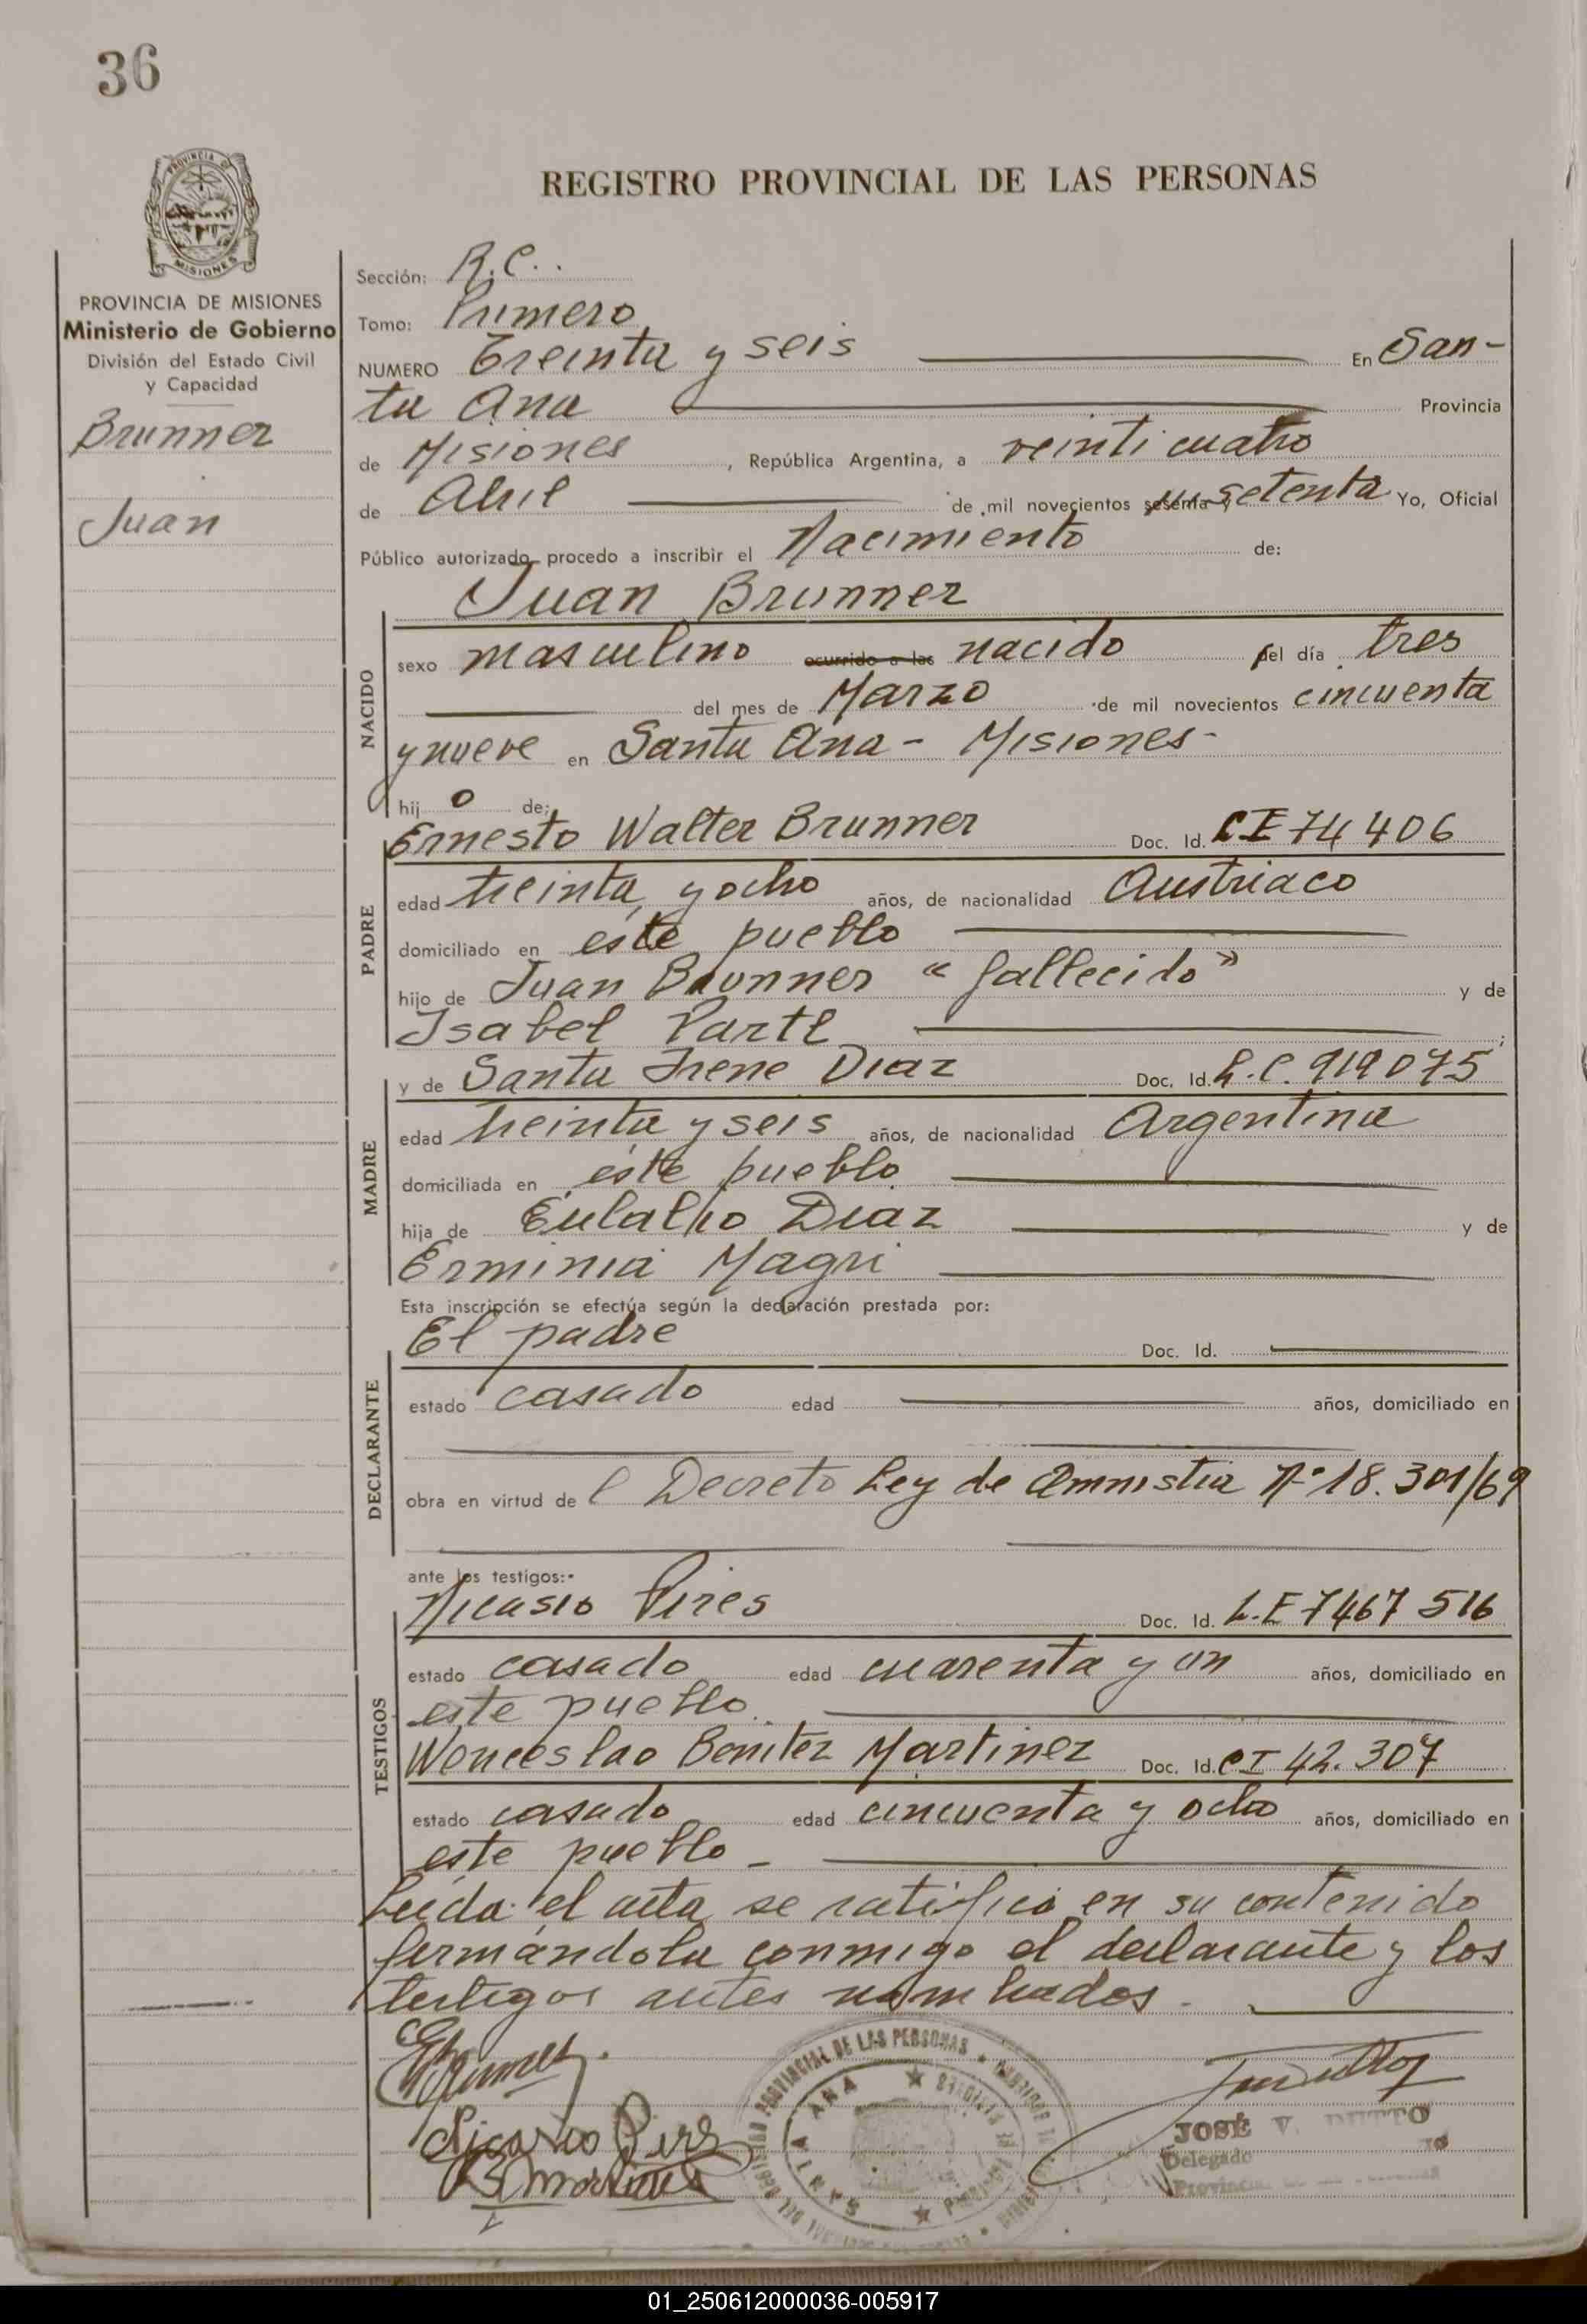 36
PROVINCIA DE
MISIONES
PROVINCIA DE MISIONES
Ministerio de Gobierno
División del Estado Civil
y Capacidad
Brunner
Juan
REGISTRO PROVINCIAL DE LAS PERSONAS
Sección: R.C..
Tomo: Primero
NUMERO Treinta y seis En San-
ta Ana Provincia
de Misiones, República Argentina, a veinticuatro
de Abril de mil novecientos sesenta y setenta Yo, Oficial
Público autorizado procedo a inscribir el Nacimiento de:
Juan Brunner
NACIDO
sexo masculino ocurrido a las nacido el día tres
del mes de Marzo de mil novecientos cincuenta
y nueve en Santa Ana - Misiones-
hijo de:
PADRE
Ernesto Walter Brunner Doc. Id. CI 74406
edad treinta y ocho años, de nacionalidad Austriaco
domiciliado en este pueblo
hijo de Juan Brunner "fallecido" y de
Isabel Partl ;
MADRE
y de Santa Irene Diaz Doc. Id. L.C. 919075
edad treinta y seis años, de nacionalidad Argentina
domiciliada en este pueblo
hija de Eulalio Diaz y de
Erminia Magri
Esta inscripción se efectúa según la declaración prestada por:
DECLARANTE
El padre Doc. Id.
estado casado edad años, domiciliado en
obra en virtud del Decreto Ley de Amnistia Nº 18.301/69
ante los testigos:-
TESTIGOS
Nicasio Pires Doc. Id. L.E 7467516
estado casado edad cuarenta y un años, domiciliado en
este pueblo.
Wenceslao Benitez Martinez Doc. Id. CI 42.307
estado casado edad cincuenta y ocho años, domiciliado en
este pueblo -
Leida el acta se ratificó en su contenido
firmándola conmigo el declarante y los
testigos antes nombrados.
EBrunner.
Nicasio Pires
B Martinez
REGISTRO PROVINCIAL DE LAS PERSONAS
SANTA ANA
JOSÉ V. DUTTO
Delegado
01_250612000036-005917